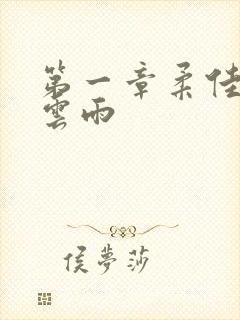 第一章柔佳
雲雨
侯夢莎